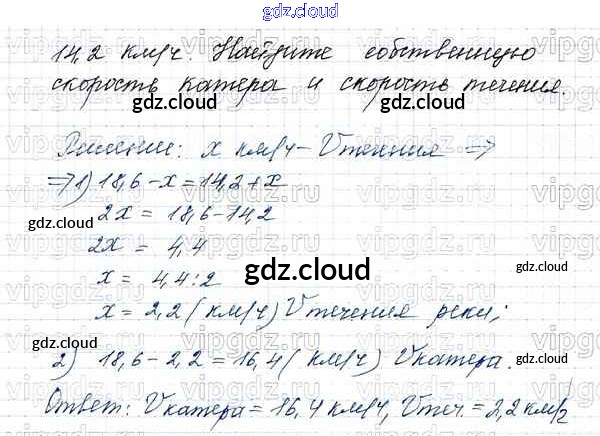 gdz.cloud
14,2 км/ч. Найдите собственную
gdz.cloud
скорость катера и скорость течения.
gdz.cloud
gdz.cloud
Решение: x км/ч - Vтечения =>
=> 1) 18,6 - x = 14,2 + x
2x = 18,6 - 14,2
gdz.cloud
2x = 4,4
gdz.cloud
gdz.cloud
x = 4,4 : 2
x = 2,2 (км/ч) Vтечения реки;
gdz.cloud
gdz.cloud
2) 18,6 - 2,2 = 16,4 (км/ч) Vкатера.
gdz.cloud
Ответ: Vкатера = 16,4 км/ч, Vтеч. = 2,2 км/ч
gdz.cloud